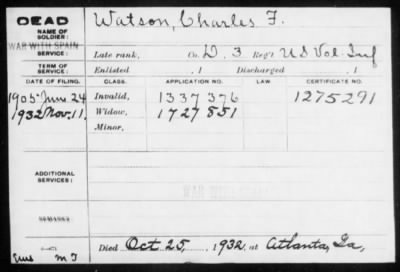 DEAD
Watson, Charles F.
NAME OF SOLDIER:
WAR WITH SPAIN
SERVICE:
Late rank, Co. D. 3 Reg't U S Vol. Inf
TERM OF SERVICE:
Enlisted , 1 Discharged , 1
DATE OF FILING. CLASS. APPLICATION NO. LAW CERTIFICATE NO.
1905 June 24 Invalid, 1337376 1275291
1932 Nov. 11. Widow, 1727851
Minor,
ADDITIONAL SERVICES:
WAR WITH
REMARKS
Died Oct 25, 1932, at Atlanta, Ga,